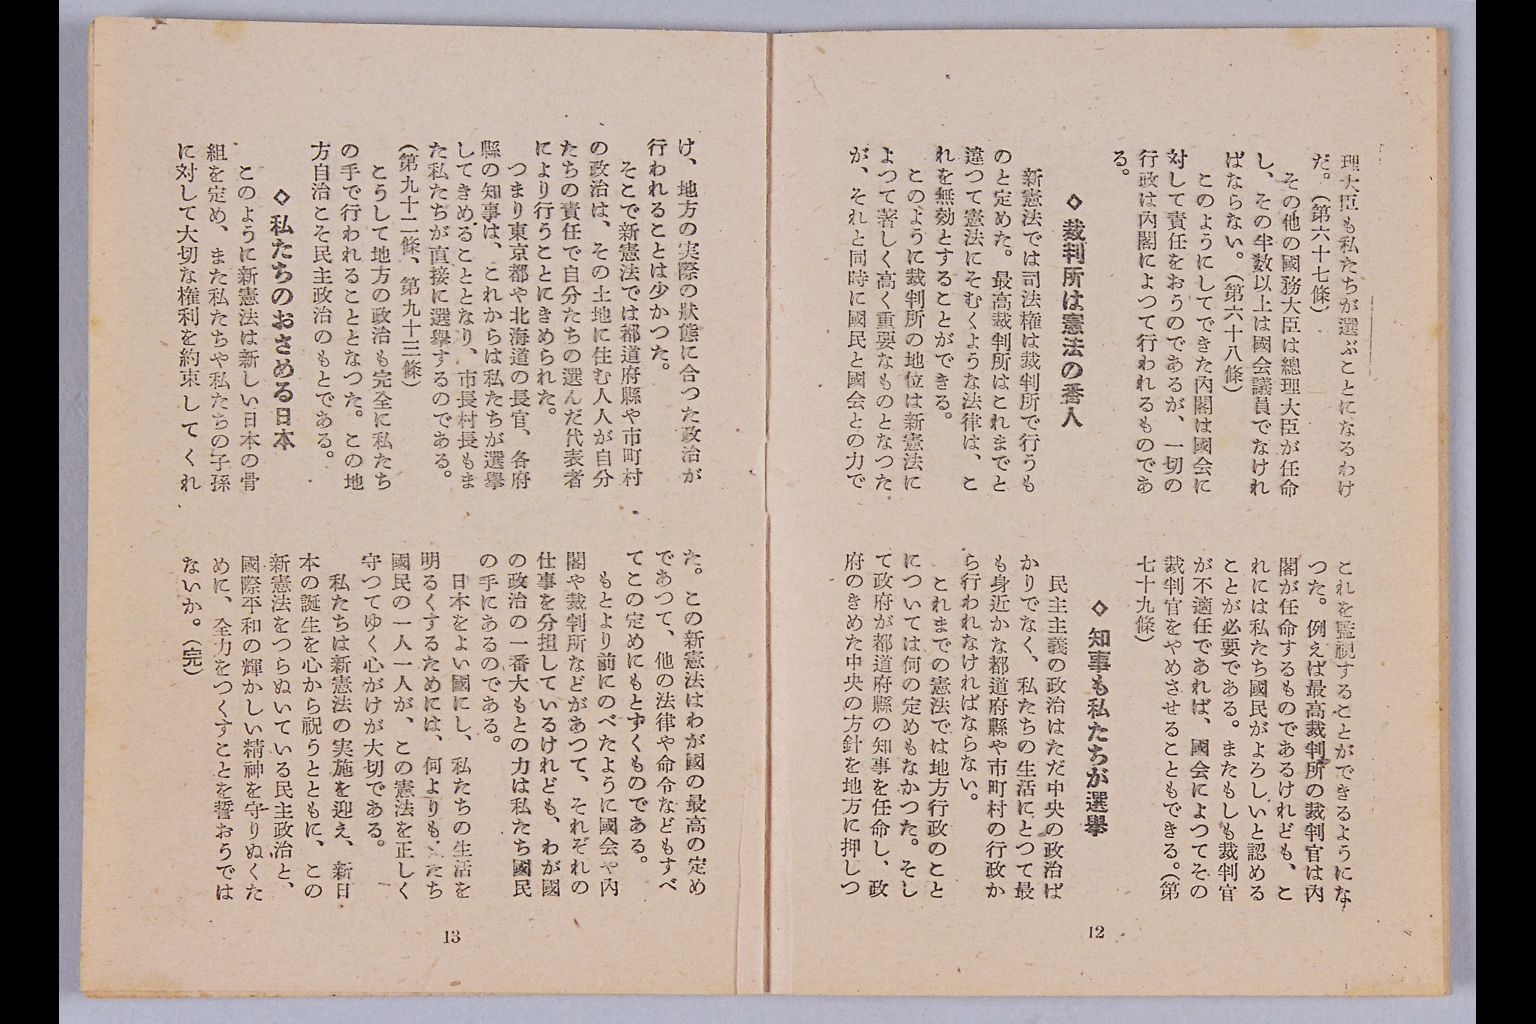 理大臣も私たちが選ぶことになるわけ
だ。（第六十七條）
その他の國務大臣は總理大臣が任命
し、その半数以上は國会議員でなけれ
ばならない。（第六十八條）
このようにしてできた内閣は國会に
対して責任をおうのであるが、一切の
行政は内閣によつて行われるものであ
る。
◇裁判所は憲法の番人
新憲法では司法権は裁判所で行うも
のと定めた。最高裁判所はこれまでと
違つて憲法にそむくような法律は、こ
れを無効とすることができる。
このように裁判所の地位は新憲法に
よつて著しく高く重要なものとなつた
が、それと同時に國民と國会との力で
これを監視することができるようにな
つた。例えば最高裁判所の裁判官は内
閣が任命するものであるけれども、こ
れには私たち國民がよろしいと認める
ことが必要である。またもしも裁判官
が不適任であれば、國会によつてその
裁判官をやめさせることもできる。（第
七十九條）
◇知事も私たちが選擧
民主主義の政治はただ中央の政治ば
かりでなく、私たちの生活にとつて最
も身近かな都道府縣や市町村の行政か
ら行われなければならない。
これまでの憲法では地方行政のこと
については何の定めもなかつた。そし
て政府が都道府縣の知事を任命し、政
府のきめた中央の方針を地方に押しつ
12
け、地方の実際の狀態に合つた政治が
行われることは少かつた。
そこで新憲法では都道府縣や市町村
の政治は、その土地に住む人人が自分
たちの責任で自分たちの選んだ代表者
により行うことにきめられた。
つまり東京都や北海道の長官、各府
縣の知事は、これからは私たちが選擧
してきめることとなり、市長村長もま
た私たちが直接に選擧するのである。
（第九十二條、第九十三條）
こうして地方の政治も完全に私たち
の手で行われることとなつた。この地
方自治こそ民主政治のもとである。
◇私たちのおさめる日本
このように新憲法は新しい日本の骨
組を定め、また私たちや私たちの子孫
に対して大切な権利を約束してくれ
た。この新憲法はわが國の最高の定め
であつて、他の法律や命令などもすべ
てこの定めにもとずくものである。
もとより前にのべたように國会や内
閣や裁判所などがあつて、それぞれの
仕事を分担しているけれども、わが國
の政治の一番大もとの力は私たち國民
の手にあるのである。
日本をよい國にし、私たちの生活を
明るくするためには、何よりも、たち
國民の一人一人が、この憲法を正しく
守つてゆく心がけが大切である。
私たちは新憲法の実施を迎え、新日
本の誕生を心から祝うとともに、この
新憲法をつらぬいている民主政治と、
國際平和の輝かしい精神を守りぬくた
めに、全力をつくすことを誓おうでは
ないか。（完）
13